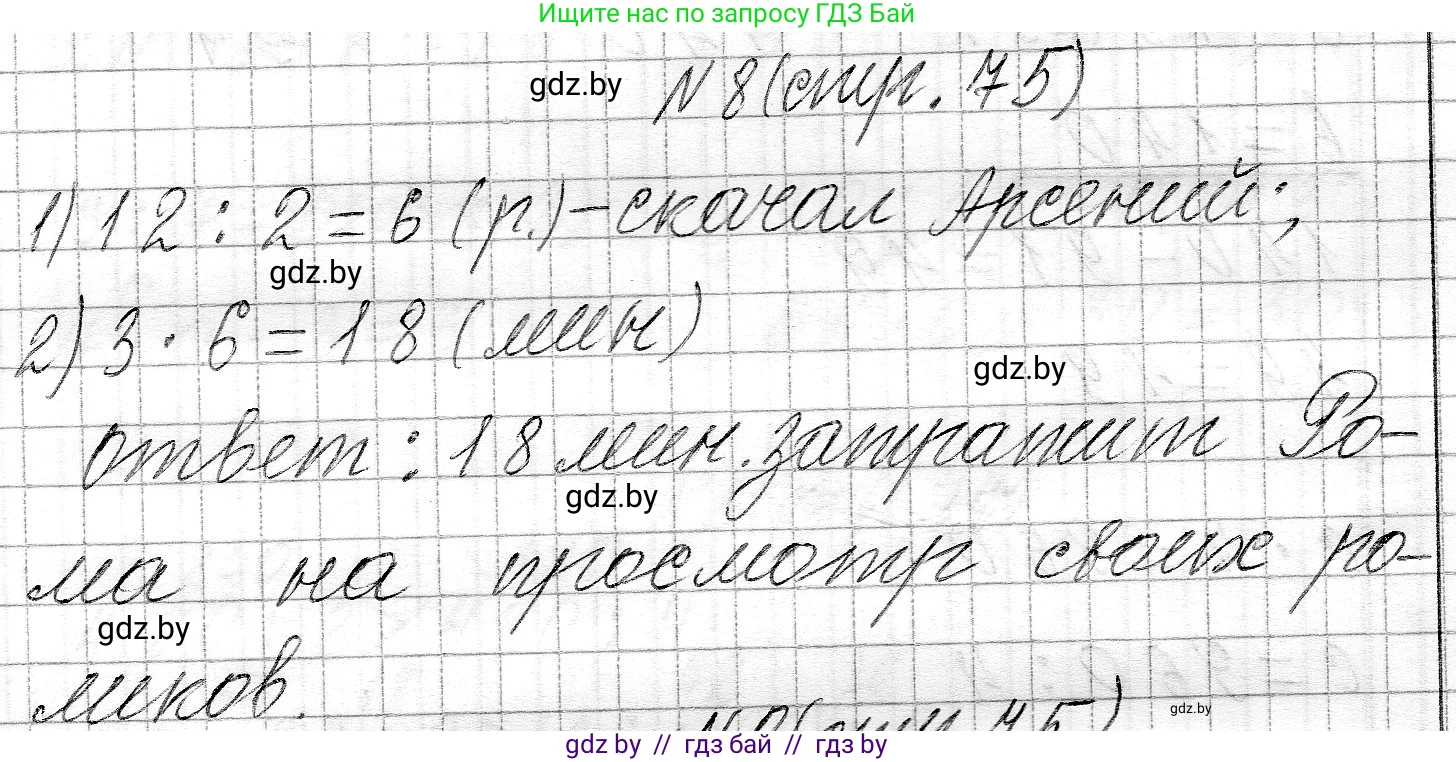 Ищите нас по запросу ГДЗ Бай
gdz.by N 8 (стр. 75)
1) 12 : 2 = 6 (р.) – скачал Арсений;
gdz.by
2) 3 · 6 = 18 (мин)
gdz.by
ответ: 18 мин. затратит Ро-
gdz.by
ма на просмотр своих ро-
gdz.by
ликов.
gdz.by
gdz.by // гдз бай // гдз by